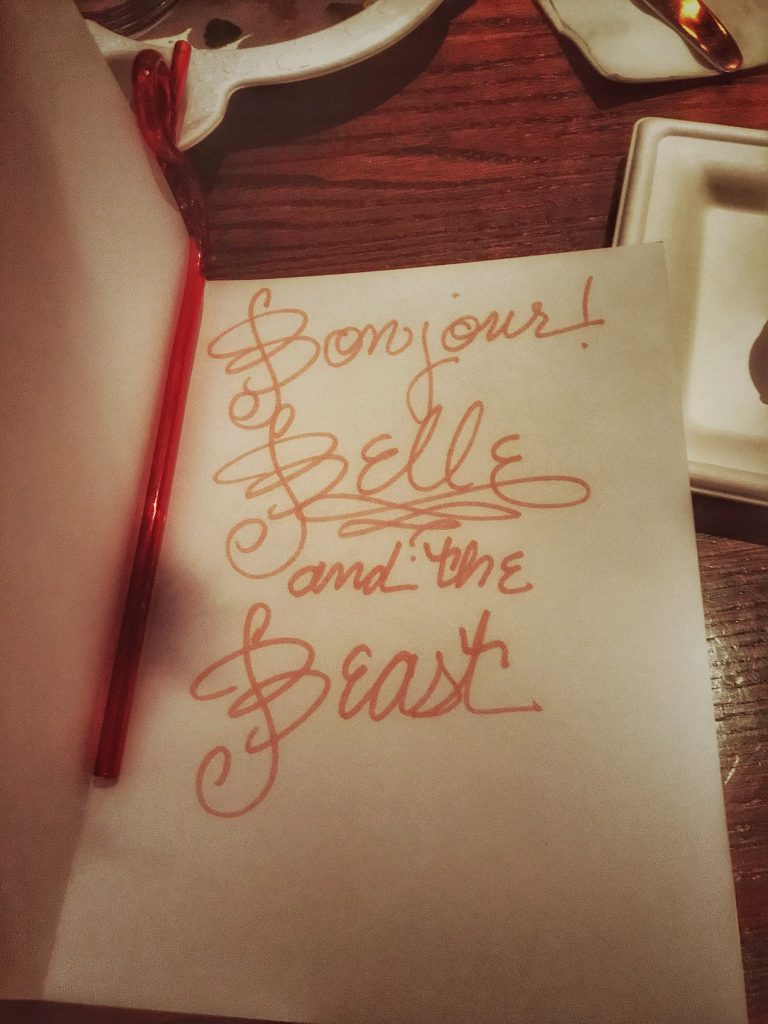 Bonjour!
Belle
and the
Beast